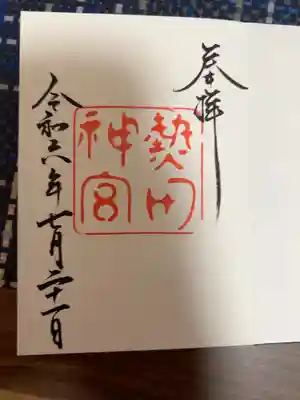 奉拝
熱田
神宮
令和六年七月二十一日